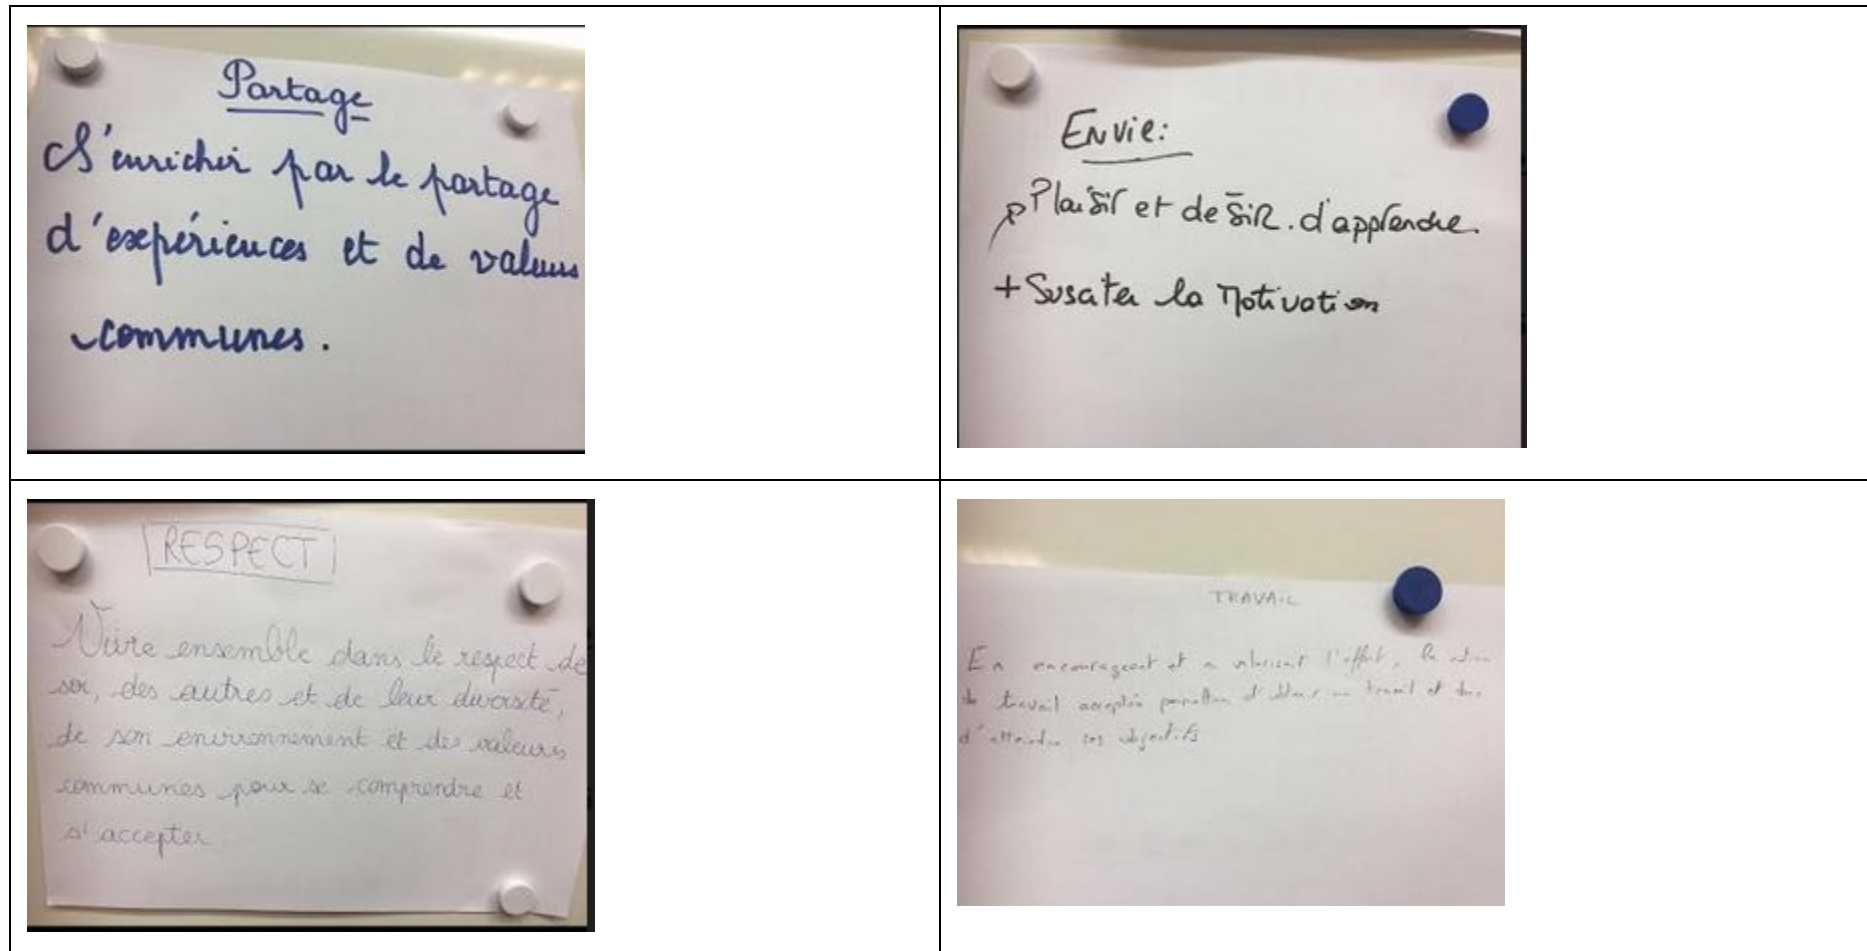 Partage
S'enrichir par le partage
d'expériences et de valeurs
communes.
Envie:
Plaisir et desir d'apprendre.
+ Susciter la Motivation
RESPECT
Vivre ensemble dans le respect de
soi, des autres et de leur diversité,
de son environnement et des valeurs
communes pour se comprendre et
s'accepter
TRAVAIL
En encourageant et en valorisant l'effort, la
de travail travail et
d'atteindre ses objectifs